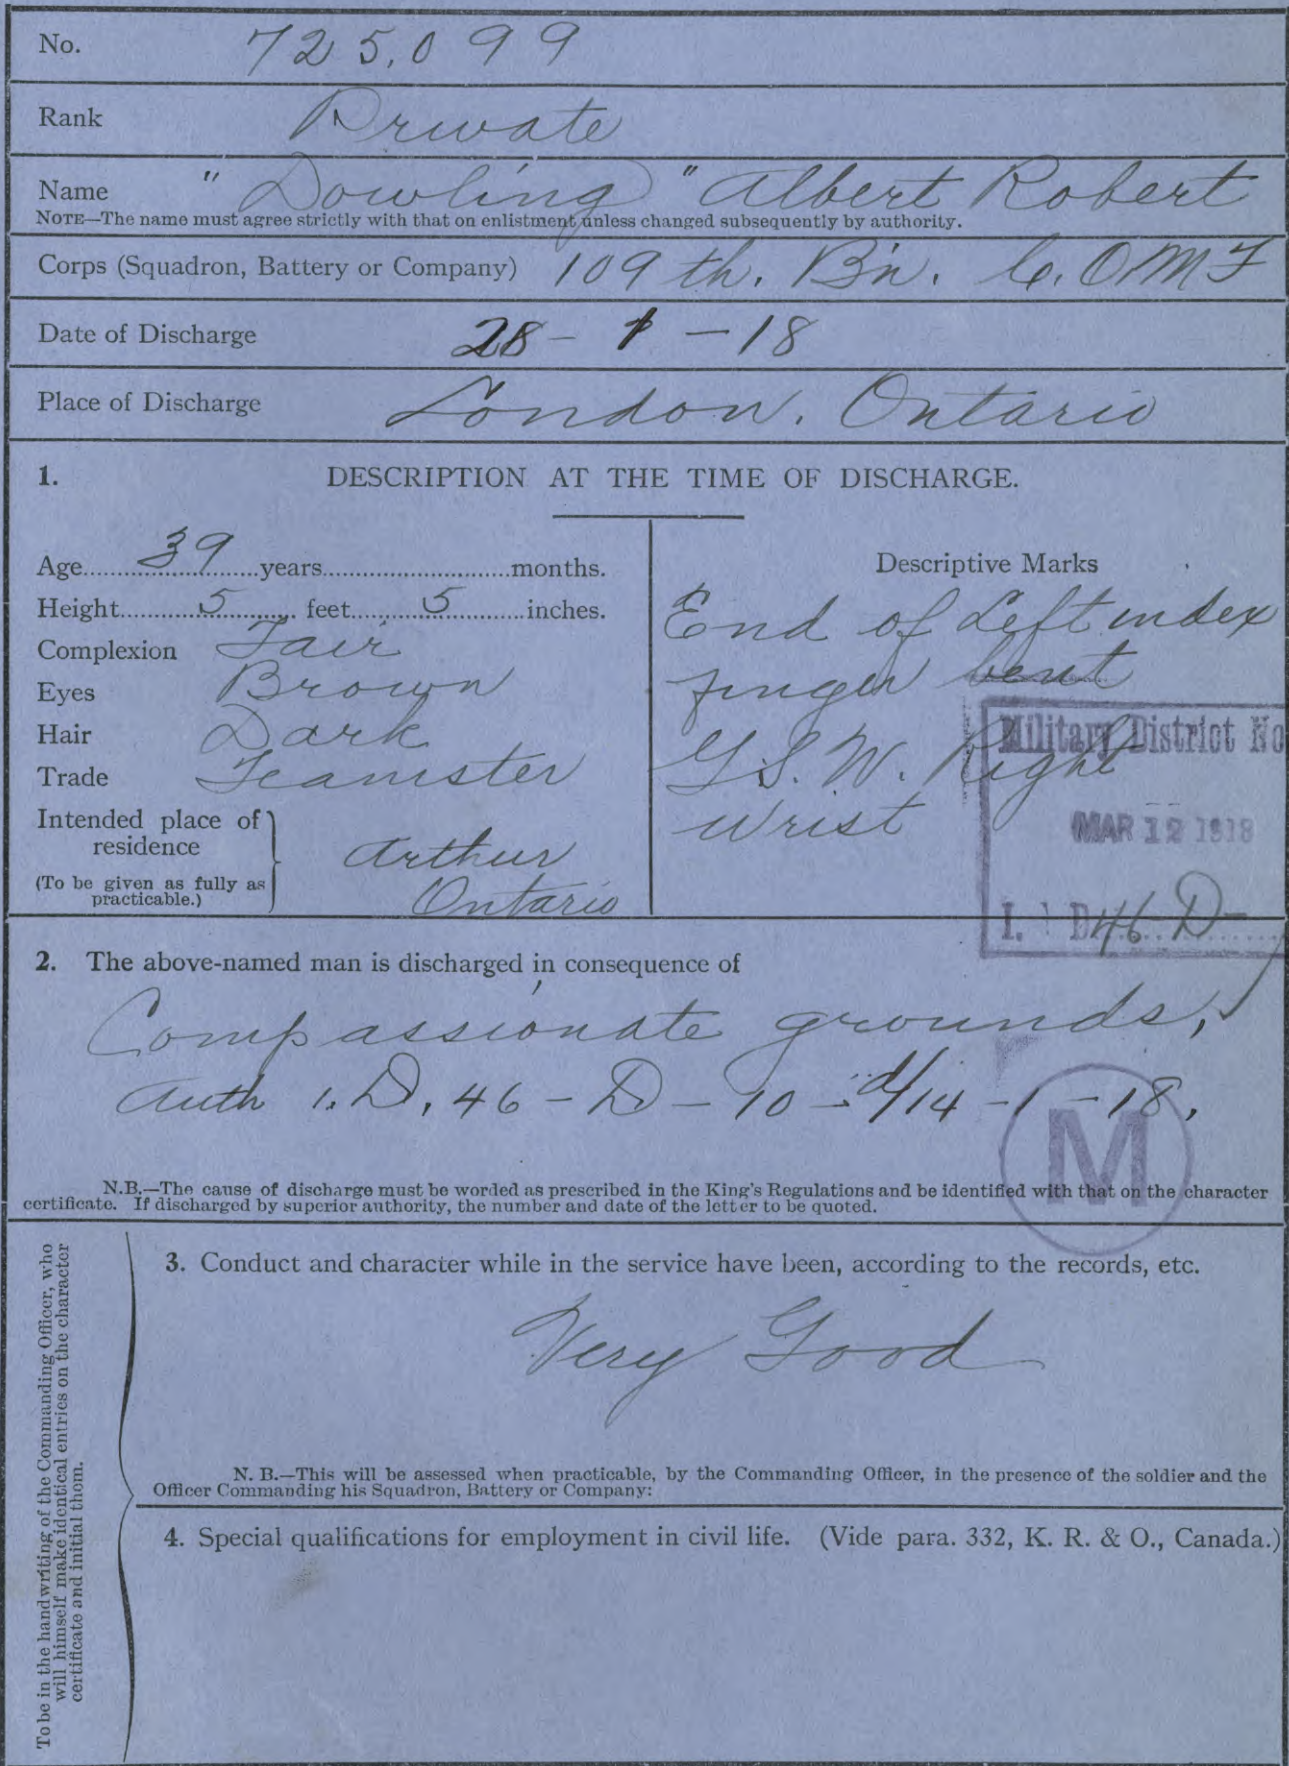 No. 725,099
Rank Private
Name "Dowling" Albert Robert
NOTE—The name must agree strictly with that on enlistment unless changed subsequently by authority.
Corps (Squadron, Battery or Company) 109th. Bn. C.O.M.F
Date of Discharge 28-1-18
Place of Discharge London. Ontario
1. DESCRIPTION AT THE TIME OF DISCHARGE.
Age 39 years months.
Height 5 feet 5 inches.
Complexion Fair
Eyes Brown
Hair Dark
Trade Teamster
Intended place of
residence
(To be given as fully as
practicable.)
Arthur
Ontario
Descriptive Marks
End of Left index
finger bent
G.S.W. Right
wrist
Military District No
MAR 12 1918
46 D
2. The above-named man is discharged in consequence of
Compassionate grounds,
Auth 1.D. 46-D-10- d/14-1-18.
M
N.B.—The cause of discharge must be worded as prescribed in the King's Regulations and be identified with that on the character
certificate. If discharged by superior authority, the number and date of the letter to be quoted.
To be in the handwriting of the Commanding Officer, who
will himself make identical entries on the character
certificate and initial them.
3. Conduct and character while in the service have been, according to the records, etc.
Very Good
N. B.—This will be assessed when practicable, by the Commanding Officer, in the presence of the soldier and the
Officer Commanding his Squadron, Battery or Company:
4. Special qualifications for employment in civil life. (Vide para. 332, K. R. & O., Canada.)